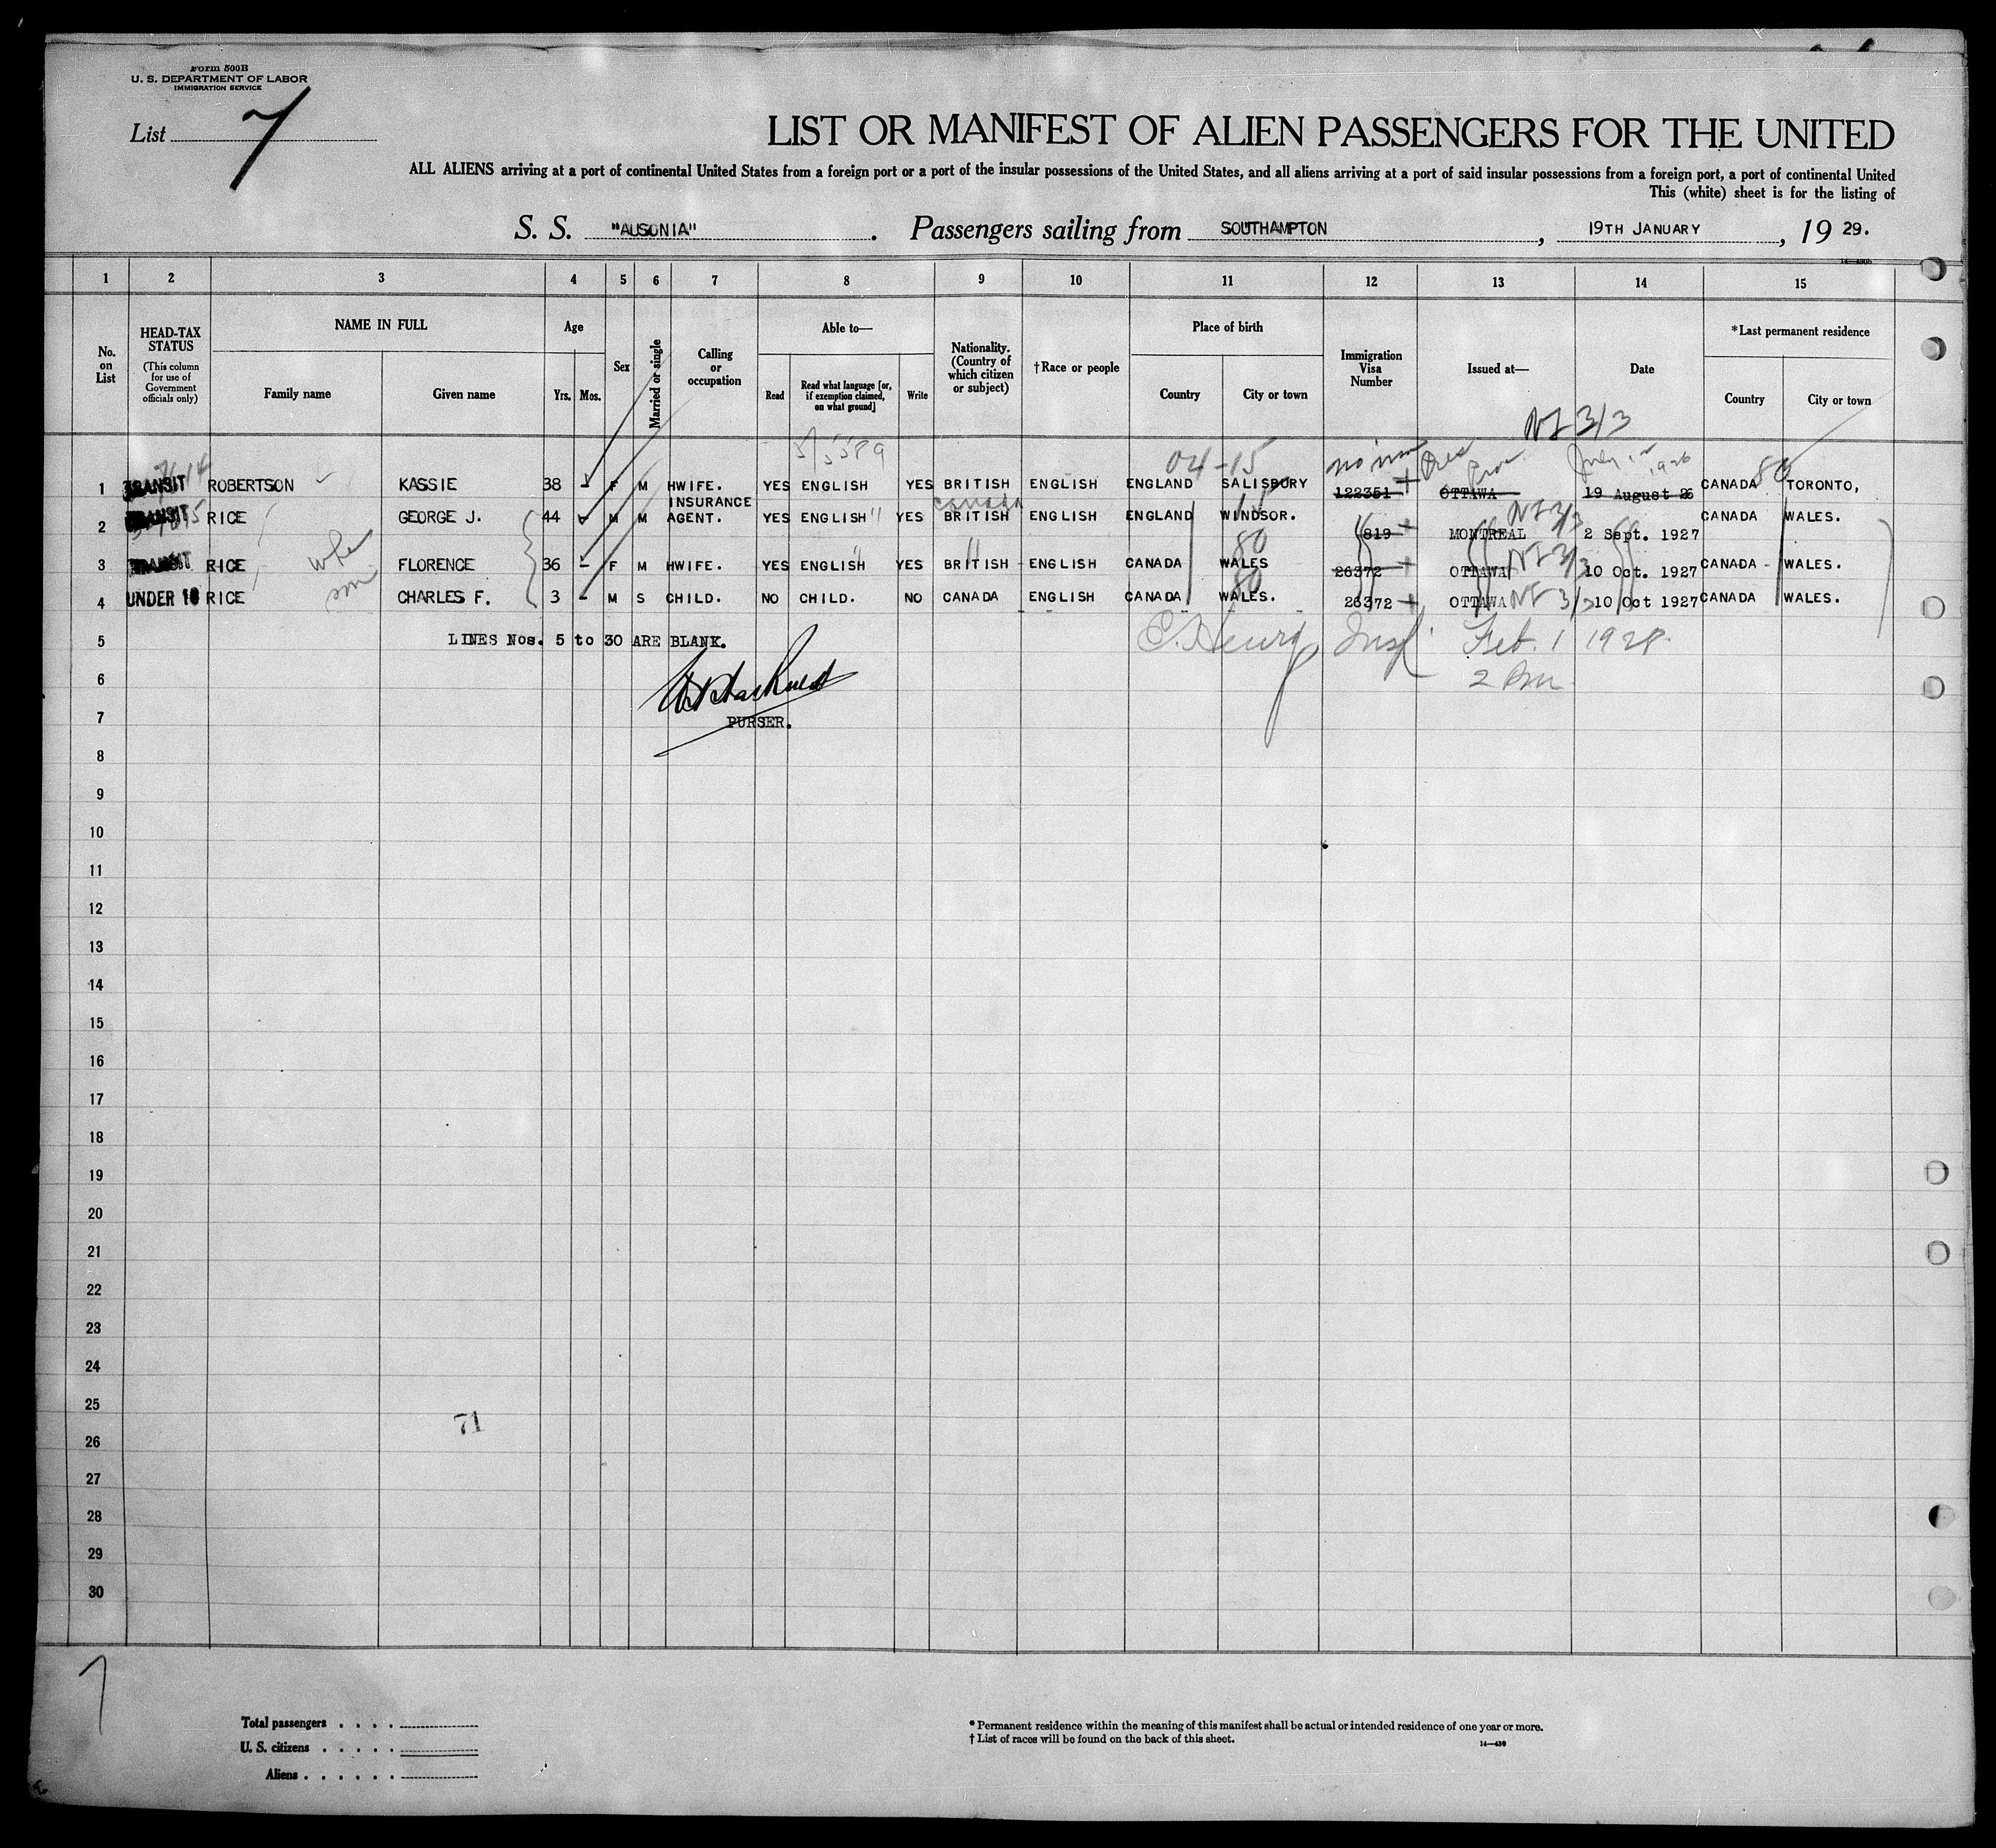 Form 500B
U. S. DEPARTMENT OF LABOR
IMMIGRATION SERVICE
List 7
LIST OR MANIFEST OF ALIEN PASSENGERS FOR THE UNITED
ALL ALIENS arriving at a port of continental United States from a foreign port or a port of the insular possessions of the United States, and all aliens arriving at a port of said insular possessions from a foreign port, a port of continental United
This (white) sheet is for the listing of
S. S. "AUSONIA". Passengers sailing from SOUTHAMPTON, 19TH JANUARY, 19 29.
1 2 3 4 5 6 7 8 9 10 11 12 13 14 15
No. on List
HEAD-TAX STATUS
(This column for use of Government officials only)
NAME IN FULL
Family name Given name
Age
Yrs. Mos.
Sex
Married or single
Calling or occupation
Able to—
Read
Read what language [or, if exemption claimed, on what ground]
Write
Nationality. (Country of which citizen or subject)
†Race or people
Place of birth
Country City or town
Immigration Visa Number
Issued at—
Date
*Last permanent residence
Country City or town
NJ 3/3
04-15
July 1926
1 TRANSIT ROBERTSON KASSIE 38 - F M HWIFE. YES ENGLISH YES BRITISH ENGLISH ENGLAND SALISBURY 122351 OTTAWA 19 August 26 CANADA 80 TORONTO,
Canada
2 TRANSIT RICE GEORGE J. 44 M M INSURANCE AGENT. YES ENGLISH YES BRITISH ENGLISH ENGLAND WINDSOR. 819 MONTREAL 2 Sept. 1927 CANADA WALES.
3 TRANSIT RICE wife FLORENCE 36 - F M HWIFE. YES ENGLISH YES BRITISH ENGLISH CANADA WALES 80 26372 OTTAWA NJ 3/3 10 Oct. 1927 CANADA - WALES.
4 UNDER 16 RICE son CHARLES F. 3 - M S CHILD. NO CHILD. NO CANADA ENGLISH CANADA WALES. 80 26372 OTTAWA NJ 3/3 10 Oct 1927 CANADA WALES.
5 LINES Nos. 5 to 30 ARE BLANK. C. Henry Insp. Feb. 1 1928
6 2 Pm
7 PURSER.
8
9
10
11
12
13
14
15
16
17
18
19
20
21
22
23
24
25
71
26
27
28
29
30
7
Total passengers . . . .
U. S. citizens . . . . .
Aliens . . . . . .
* Permanent residence within the meaning of this manifest shall be actual or intended residence of one year or more.
† List of races will be found on the back of this sheet.
14—430